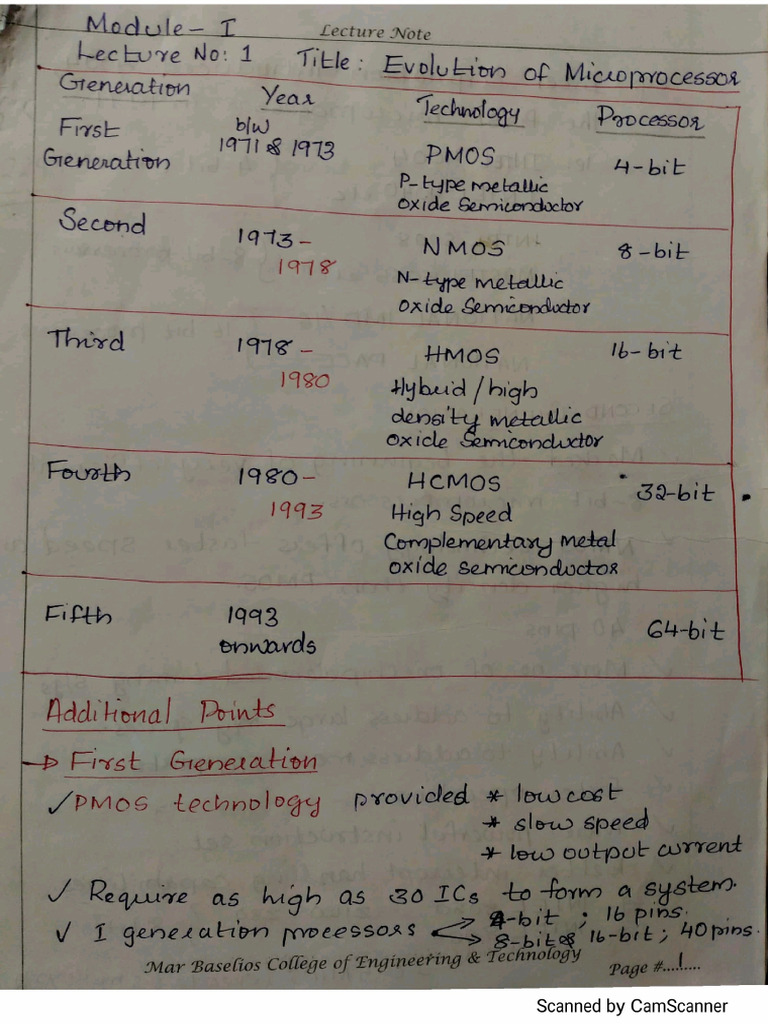 Lecture Note
Module - I
Lecture No: 1 Title: Evolution of Microprocessor
Generation Year Technology Processor
First Generation b/w 1971 & 1973 PMOS 4-bit
P-type metallic
oxide Semiconductor
Second 1973 - 1978 NMOS 8-bit
N-type metallic
oxide Semiconductor
Third 1978 - 1980 HMOS 16-bit
Hybrid / high
density metallic
oxide Semiconductor
Fourth 1980 - 1993 HCMOS 32-bit
High Speed
Complementary metal
oxide semiconductor
Fifth 1993 onwards 64-bit
Additional Points
→ First Generation
✓ PMOS technology provided * low cost
* slow speed
* low output current
✓ Require as high as 30 ICs to form a system.
✓ I generation processors → 4-bit ; 16 pins.
→ 8-bit & 16-bit ; 40 pins.
Mar Baselios College of Engineering & Technology
Page #....1.....
Scanned by CamScanner